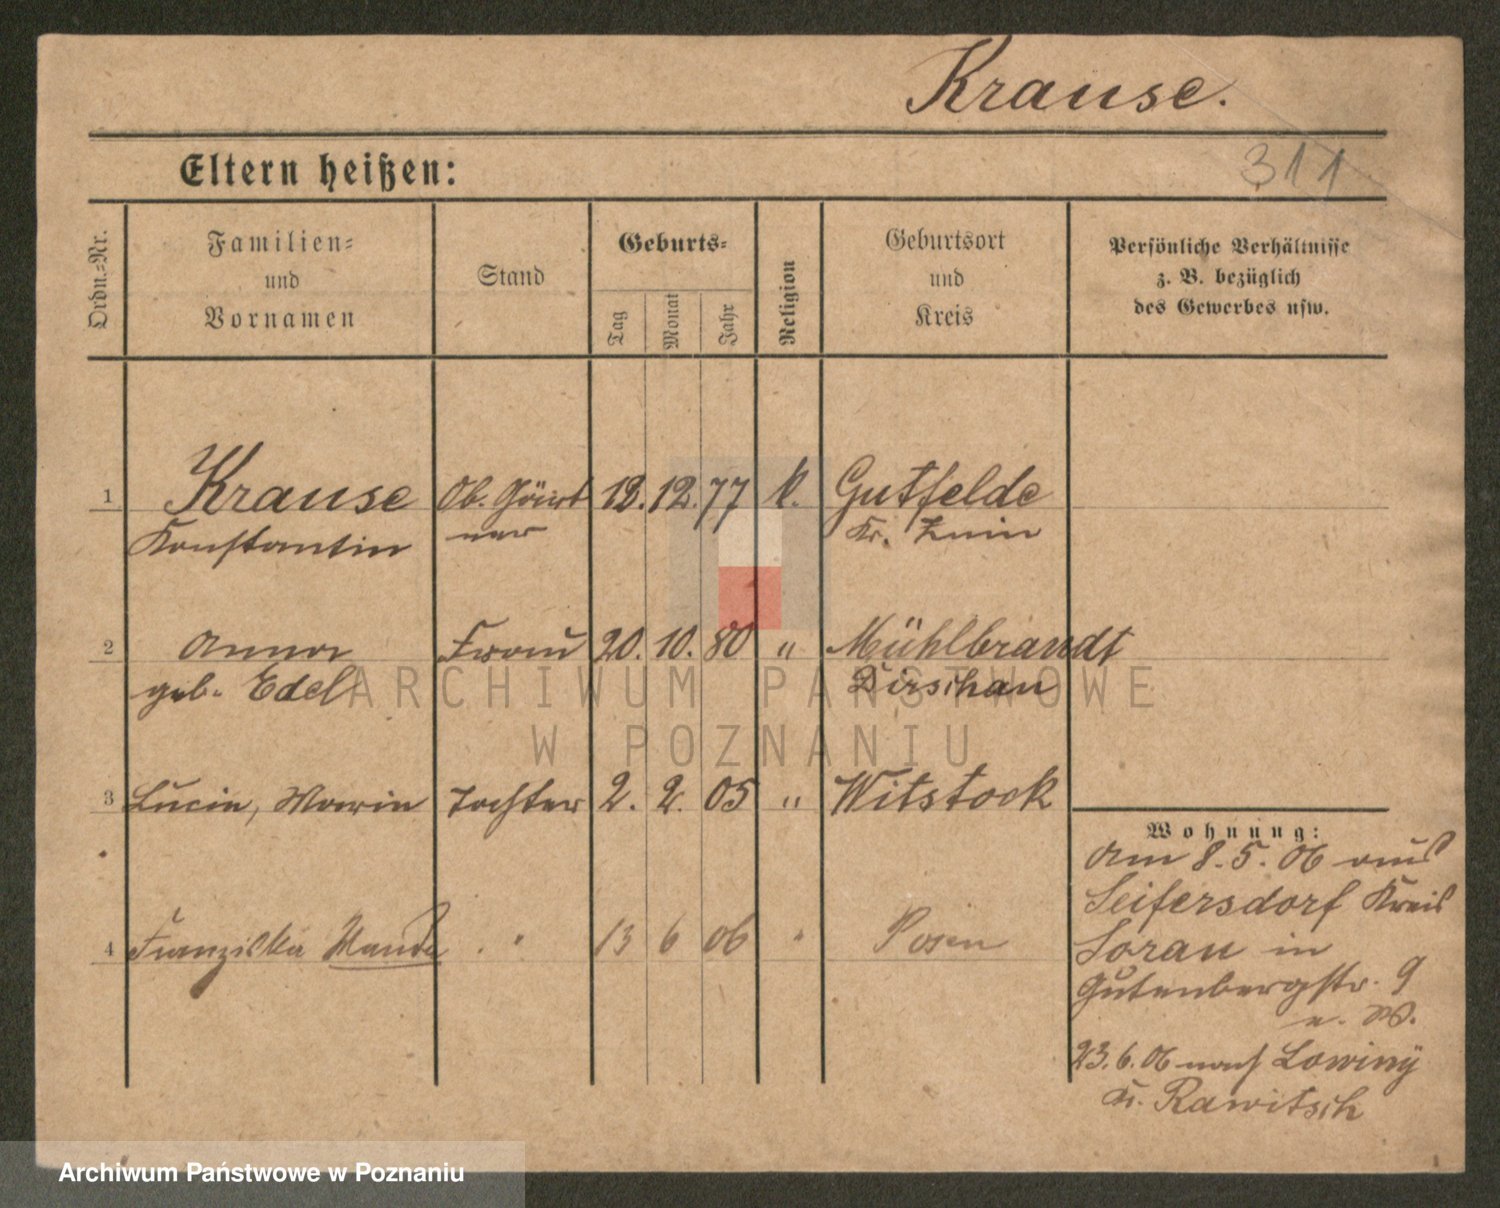 Krause.
311
Eltern heißen:
Ordn.=Nr.
Familien=
und
Vornamen
Stand
Geburts=
Tag
Monat
Jahr
Religion
Geburtsort
und
Kreis
Persönliche Verhältnisse
z. B. bezüglich
des Gewerbes usw.
1 Krause Ob. Gärt 12. 12. 77 k. Gutfelde
Konstantin ner Kr. Znin
2 Anna Frau 20. 10. 80 " Mühlbrandt
geb. Edel Dirschau
3 Lucie, Marie Tochter 2. 2. 05 " Witstock
4 Franziska Wanda . " 13 6 06 " Posen
Wohnung:
Am 8. 5. 06 aus
Seifersdorf Kreis
Sorau in
Gutenbergstr. 9
e. W.
23. 6. 06 nach Lowiny
Kr. Rawitsch
ARCHIWUM PAŃSTWOWE
W POZNANIU
Archiwum Państwowe w Poznaniu